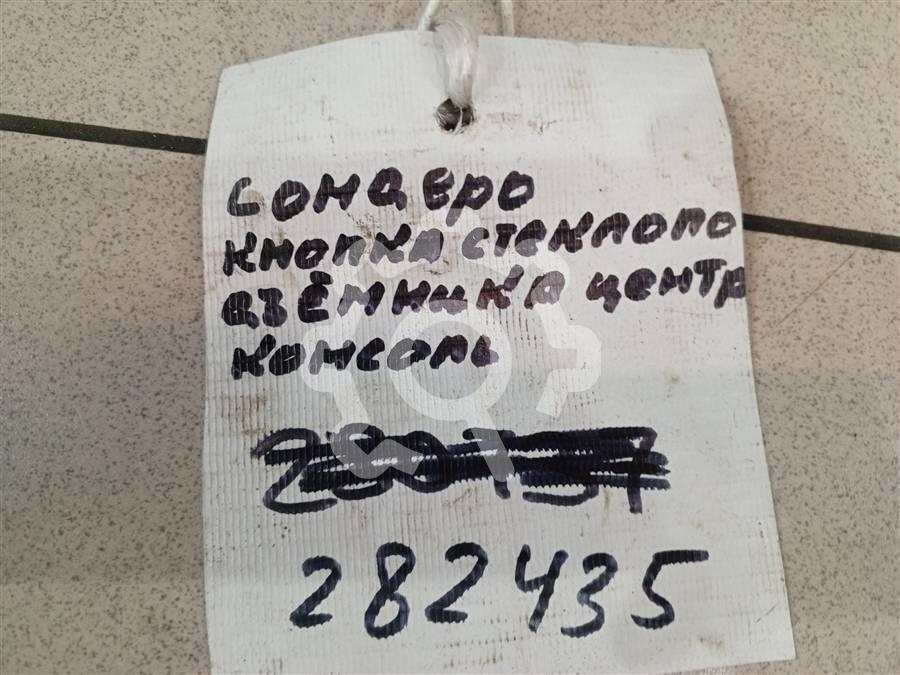 сондеро
кнопка стеклопо
дъёмника центр
консоль
282435